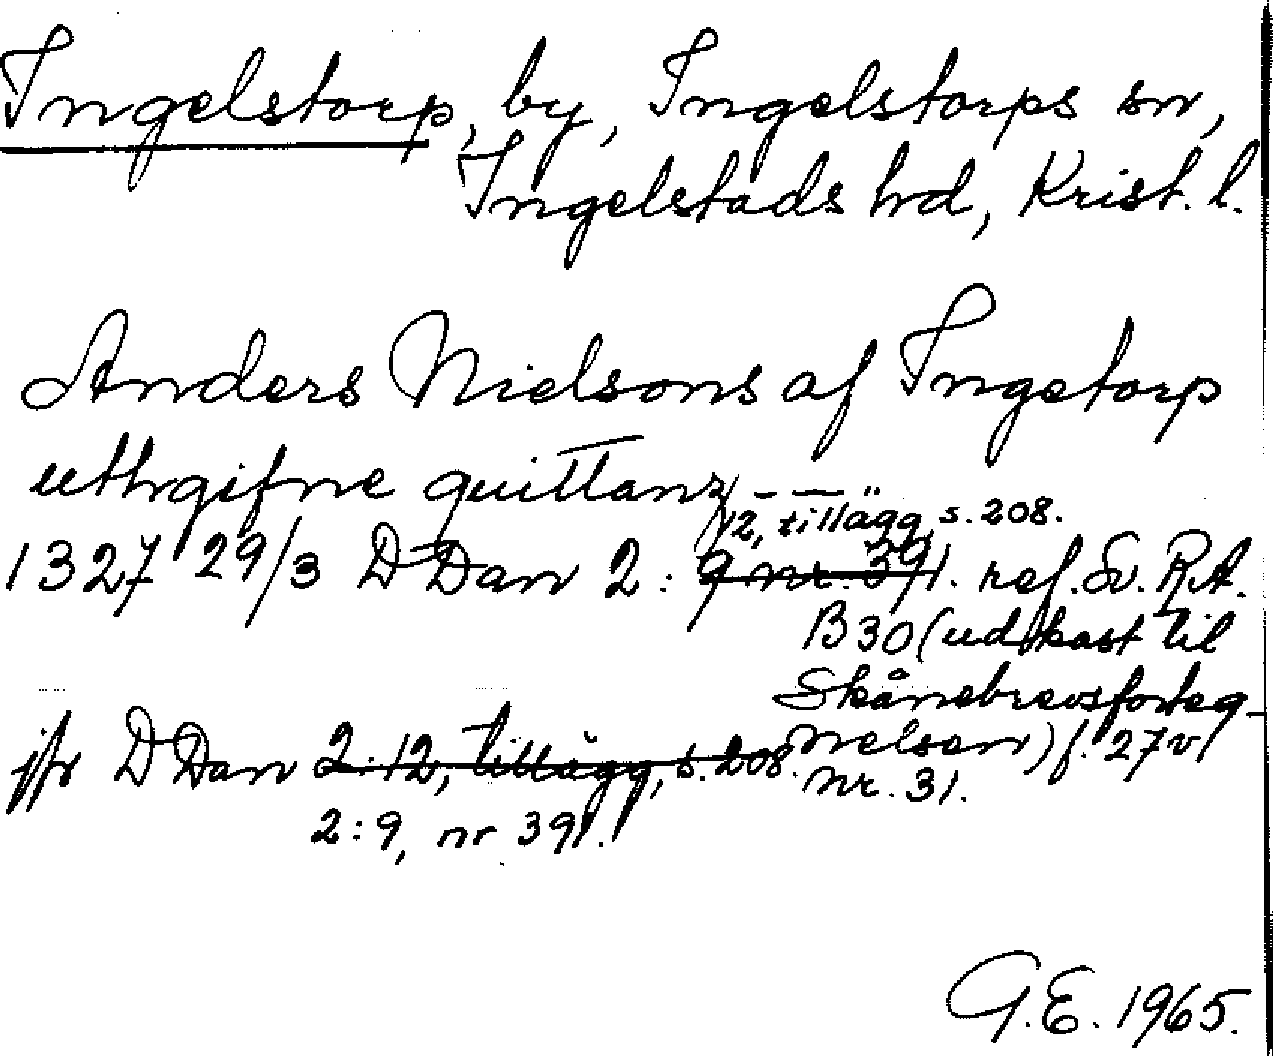 Ingelstorp, by, Ingelstorps sn,
Ingelstads hd, Krist. l.
Anders Nielsons af Ingetorp
uthgifne quittanz
12, tillägg, s. 208.
1327 29/3 DDan 2: 9 nr. 391. ref. Sv. R.A.
B30 (udkast til
Skånebrevsforteg-
nelsen) f. 27v
jfr DDan 2:12, tillägg, s. 208. nr. 31.
2:9, nr 391.
G.E. 1965.